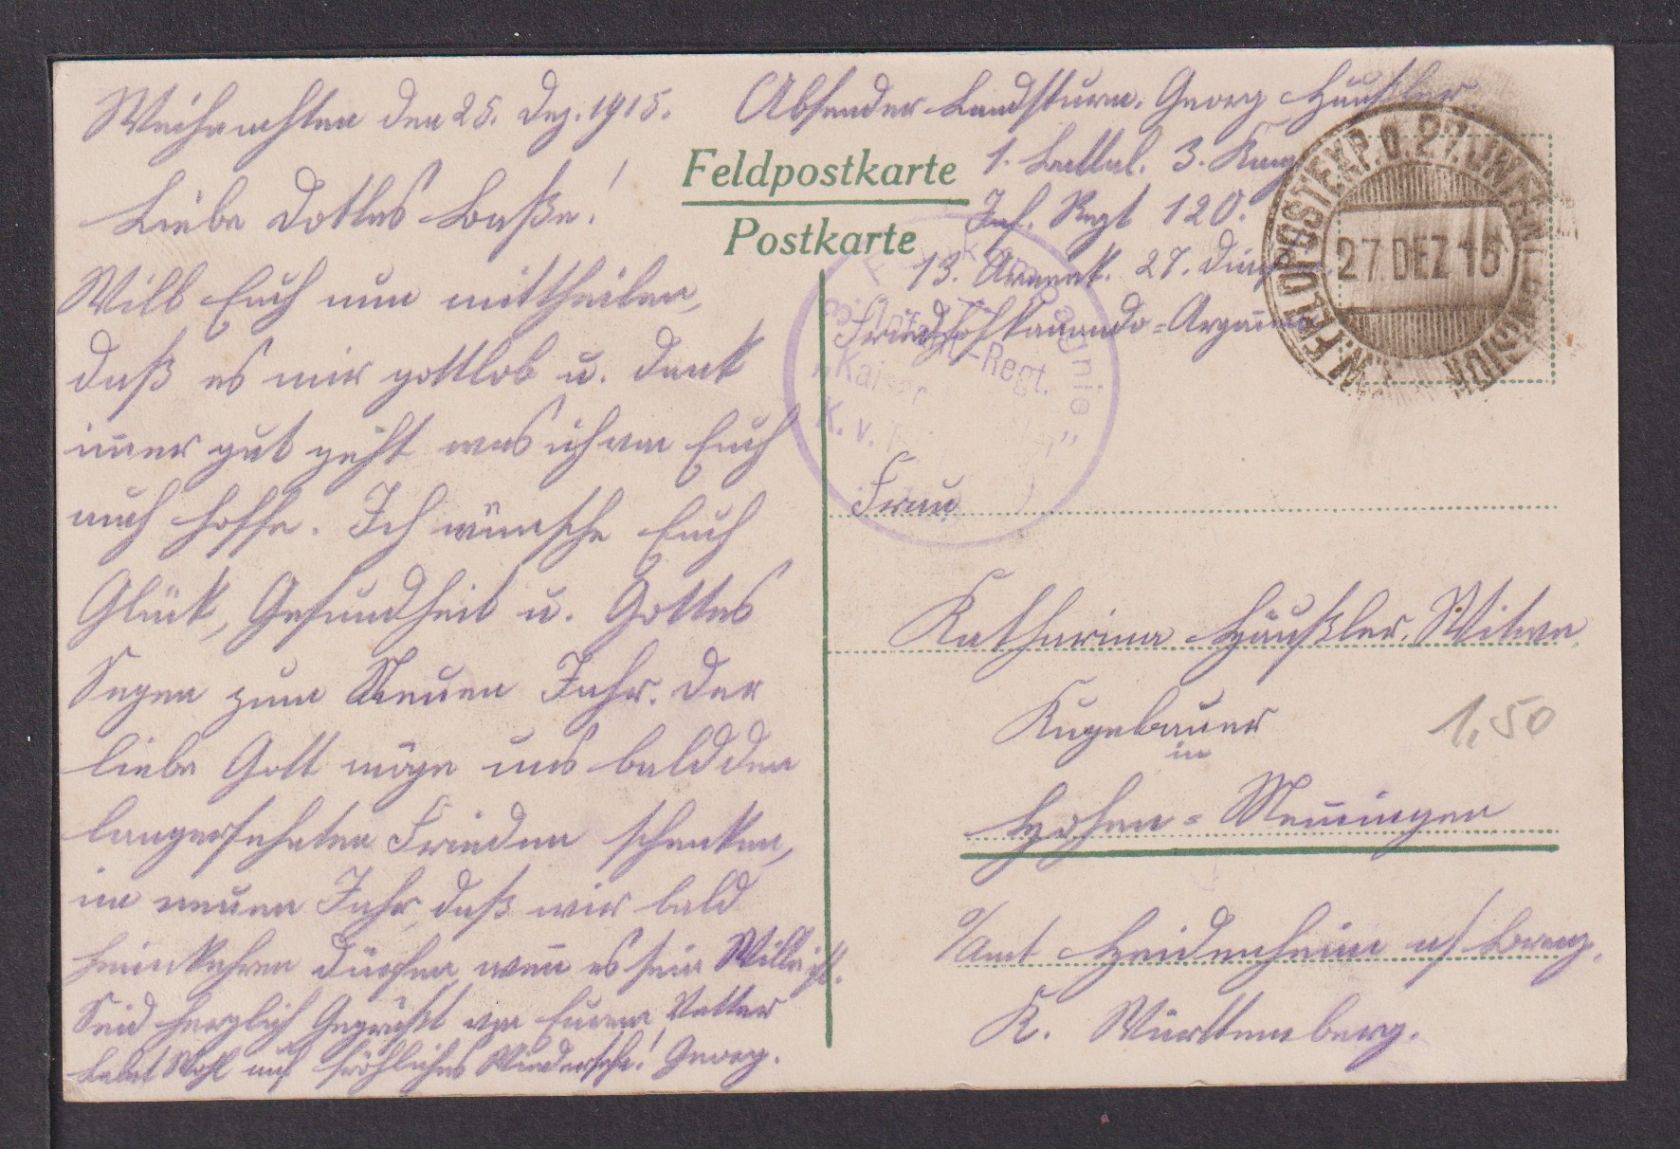 Weihnachten den 25. Dez. 1915.
Liebe Dottes Baße!
Will Euch nun mittheilen,
daß es mir gottlob u. dank
im̄er gut geht was ich von Euch
auch hoffe. Ich wünsche Euch
Glück, Gesundheit u. Gottes
Segen zum Neuen Jahr. Der
liebe Gott möge uns bald den
langersehnten Frieden schenken,
im neuen Jahr, daß wir bald
heimkehren dürfen, wen̄ es sein Wille ist.
Seid herzlich Gegrüßt von Eurem Vetter
Lebet Wohl auf fröhliches Wiedersehn! Georg.
Absender Landsturm. Georg Häußler
1. Battal. 3. Komp
Inf. Regt 120.
13. Armeek. 27. Divis
Friedhofkomando-Argonnen
Feldpostkarte
Postkarte
K.W. FELDPOSTEXP. D. 27. INFANT. DIVISION
27. DEZ 15
Kompagnie
Regt.
"Kaiser
K. v.
Frau
Katharina Häußler. Witwe
Kugelbauer
in
Hohen-Mem̄ingen
O/Amt Heidenheim a/ Brenz.
K. Württemberg.
1,50